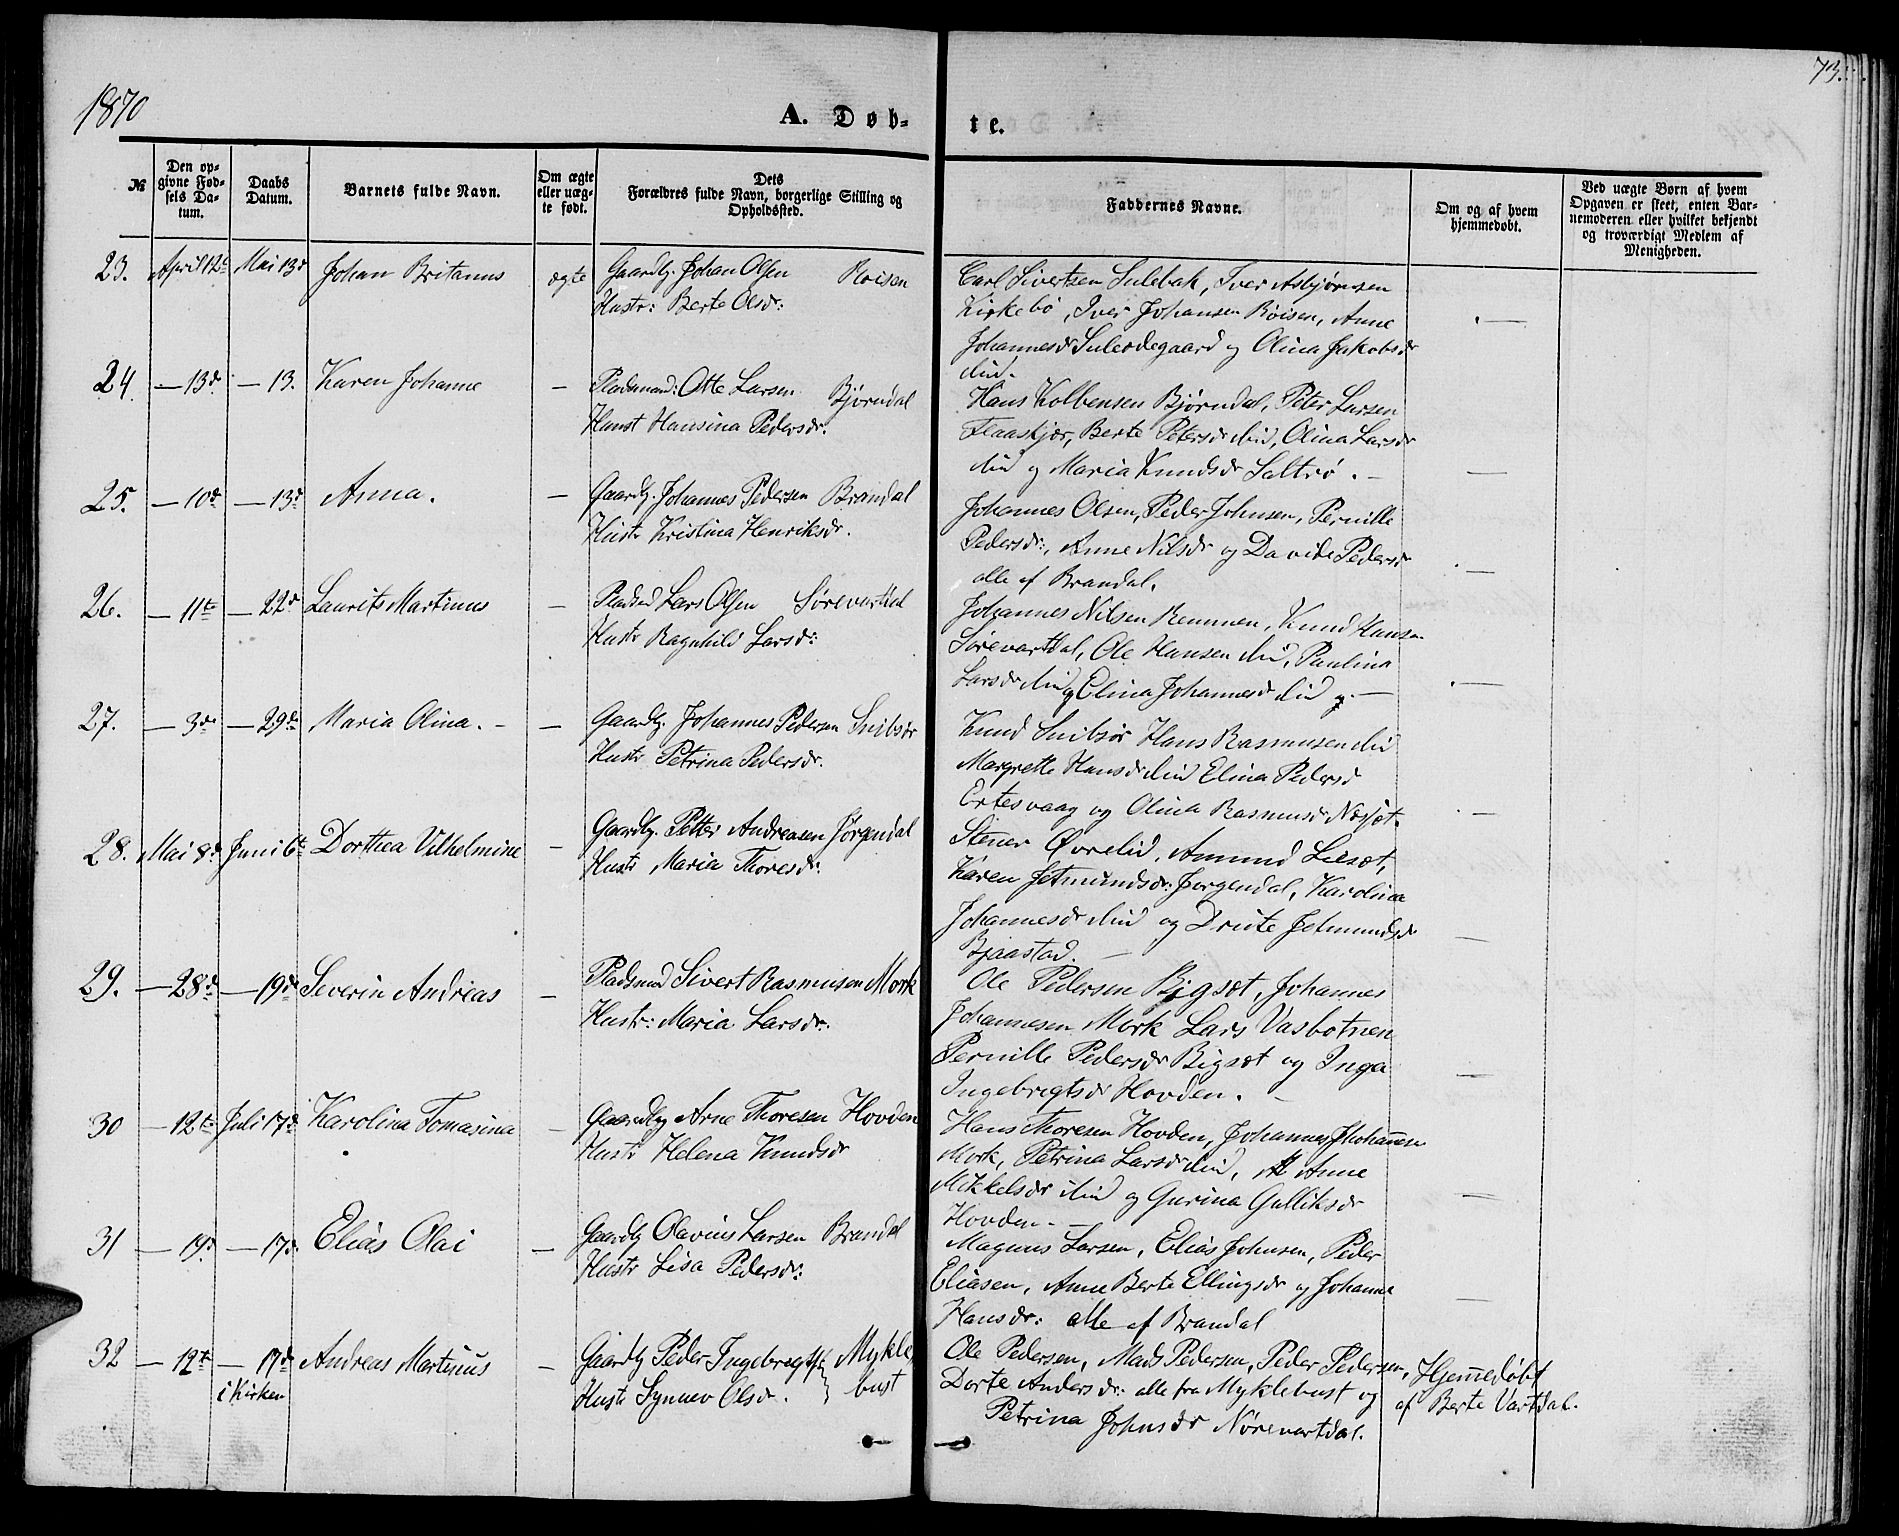 1870
73.
A. Døb-
te.
№
Den op-
givne Fød-
sels Da-
tum.
Daabs
Datum.
Barnets fulde Navn.
Om ægte
eller uæg-
te født.
Dets
Forældres fulde Navn, borgerlige Stilling og
Opholdssted.
Faddernes Navne.
Om og af hvem
hjemmedøbt.
Ved uægte Børn af hvem
Opgaven er skeet, enten Bar-
nemoderen eller hvilket bekjendt
og troværdigt Medlem af
Menigheden.
23. April 12te Mai 13d Johan Britanus ægte Gaardbr. Johan Olsen Roisen
Hustr: Berte Olsdr:
Carl Sivertsen Sulebak, Iver Asbjørnsen
Kirkebø, Iver Johansen Röisen, Anne
Johannesdr Suleødegaard og Olina Jakobsdr
ibid.
24 — 13d — 13. Karen Johanne — Pladsmand: Otte Larsen Bjørndal
Hust Hansina Pedersdr.
Hans Kolbensen Bjørndal, Peter Larsen
Flaaskjær, Berte Petersdr ibid, Olina Larsdr
ibid og Maria Knudsdr Saltrö. —
25. — 10d — 13d Anna. — Gaardbr. Johannes Pedersen Brandal
Hustr Kristina Henriksdr.
Johannes Olsen, Peder Johnsen, Pernille
Pedersdr:, Anne Nilsdr og Davide Pedersdr
alle af Brandal.
26. — 11te — 22d Laurits Martinus — Pladsmd Lars Olsen Sørevartdal
Hustr Ragnhild Larsdr:
Johannes Nilsen Remmen, Knud Hansen
Sørevartdal, Ole Hansen ibid, Paulina
Larsdr ibid og Elina Johannesdr ibid —
27. — 3de — 29de Maria Olina. — — Gaardbr. Johannes Pedersen Snibsör
Hustr Petrina Pedersdr.
Knud Snibsör Hans Rasmusen ibid
Margrethe Hansdr ibid Elina Pedersd
Ertesvaag og Olina Rasmusdr Nesset.
28. Mai 8d Juni 6te Dorthea Vilhelmine — Gaardbr. Petter Andreasen Jörgendal
Hustr Maria Thoresdr.
Stener Øvrelid, Amund Lilsæt,
Karen Jetmundsdr: Jörgendal, Karolina
Johannesdr ibid og Drute Jetmundsdr
Bjaastad. —
29. — 28d — 19d Severin Andreas — Pladsmand Sivert Rasmusen Mork
Hustr: Maria Larsdr.
Ole Pedersen Bigsæt, Johannes
Johannesen Mork Lars Vasbotnen
Pernille Pedersdr Bigsæt og Inga
Ingebregtsdr Hovden. —
30 — 12te Juli 17d Karolina Tomasina — Gaardbr Arne Thoresen Hovden
Hustr Helena Knudsdr
Hans Thoresen Hovden, Johannes Johannesen
Mork, Petrina Larsdr ibid, Anne
Mikkelsdr ibid og Gurina Gulliksdr
Hovden. —
31 — 19d — 17d. Elias Olai — Gaardbr Olavius Larsen Brandal
Hustr Lisa Pedersdr:
Magnus Larsen, Elias Johnsen, Peder
Eliasen, Anne Berte Ellingsdr og Johanne
Hansdr: alle af Brandal
32 — 12te — 17de Andreas Martinus — Gaardbr Peder Ingebregtsen Mykle-
i Kirken
Hustr Synnev Olsdr. bust
Ole Pedersen, Mads Pedersen, Peder Pedersen,
Dorte Andersdr: alle fra Myklebust og
Petrina Johnsdr Nörevartdal.
Hjemmedøbt
af Berte Vartdal.